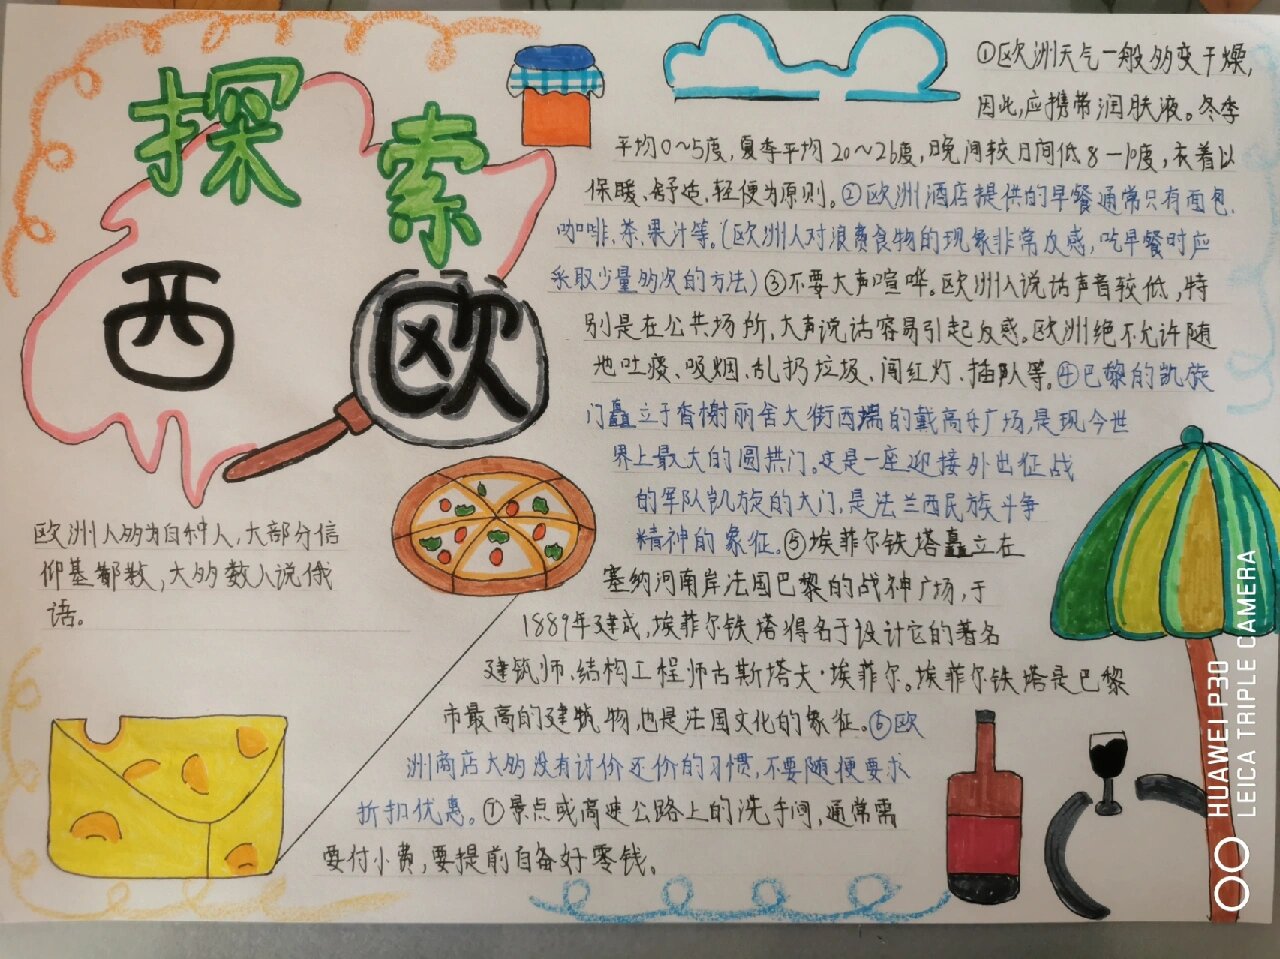 探索
西欧
欧洲人多为白种人，大部分信
仰基都教，大多数人说俄
语。
①欧洲天气一般多变干燥，
因此，应携带润肤液。冬季
平均0～5度，夏季平均20～26度，晚间较日间低8—10度，衣着以
保暖、舒适、轻便为原则。②欧洲酒店提供的早餐通常只有面包、
咖啡、茶、果汁等。（欧洲人对浪费食物的现象非常反感，吃早餐时应
采取少量多次的方法）③不要大声喧哗。欧洲人说话声音较低，特
别是在公共场所，大声说话容易引起反感。欧洲绝不允许随
地吐痰、吸烟、乱扔垃圾、闯红灯、插队等。④巴黎的凯旋
门矗立于香榭丽舍大街西端的戴高乐广场，是现今世
界上最大的圆拱门。这是一座迎接外出征战
的军队凯旋的大门，是法兰西民族斗争
精神的象征。⑤埃菲尔铁塔矗立在
塞纳河南岸法国巴黎的战神广场，于
1889年建成，埃菲尔铁塔得名于设计它的著名
建筑师、结构工程师古斯塔夫·埃菲尔。埃菲尔铁塔是巴黎
市最高的建筑物，也是法国文化的象征。⑥欧
洲商店大多没有讨价还价的习惯，不要随便要求
折扣优惠。⑦景点或高速公路上的洗手间，通常需
要付小费，要提前自备好零钱。
HUAWEI P30
LEICA TRIPLE CAMERA